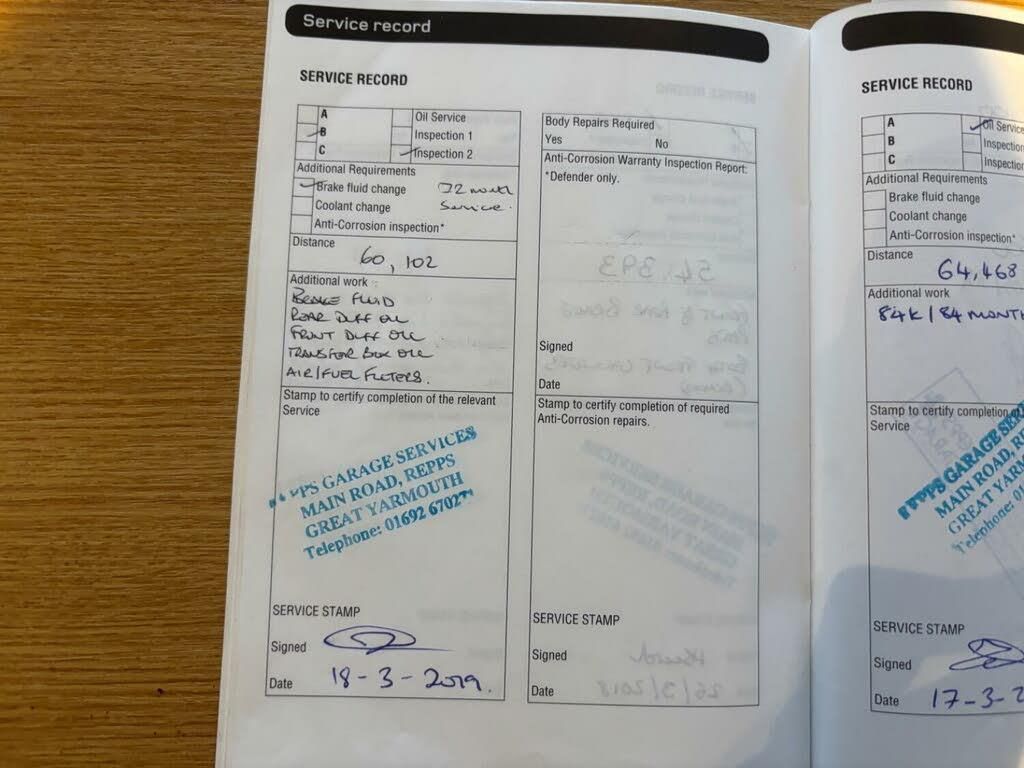 Service record
SERVICE RECORD
A
B
C
Oil Service
Inspection 1
Inspection 2
Additional Requirements
Brake fluid change
72 month
Coolant change
Service.
Anti-Corrosion inspection*
Distance
60,102
Additional work :
BRAKE FLUID
REAR DIFF OIL
FRONT DIFF OIL
TRANSFER BOX OIL
AIR/FUEL FILTERS.
Stamp to certify completion of the relevant
Service
REPPS GARAGE SERVICES
MAIN ROAD, REPPS
GREAT YARMOUTH
Telephone: 01692 67027
SERVICE STAMP
Signed
Date
18-3-2019.
Body Repairs Required
Yes No
Anti-Corrosion Warranty Inspection Report:
*Defender only.
Signed
Date
Stamp to certify completion of required
Anti-Corrosion repairs.
SERVICE STAMP
Signed
Date
SERVICE RECORD
A
B
C
Oil Service
Inspection
Inspection
Additional Requirements
Brake fluid change
Coolant change
Anti-Corrosion inspection*
Distance
64,468
Additional work
84K/84 MONTH
Stamp to certify completion of
Service
REPPS GARAGE SER
MAIN ROAD, R
GREAT YARM
Telephone: 01
SERVICE STAMP
Signed
Date
17-3-2